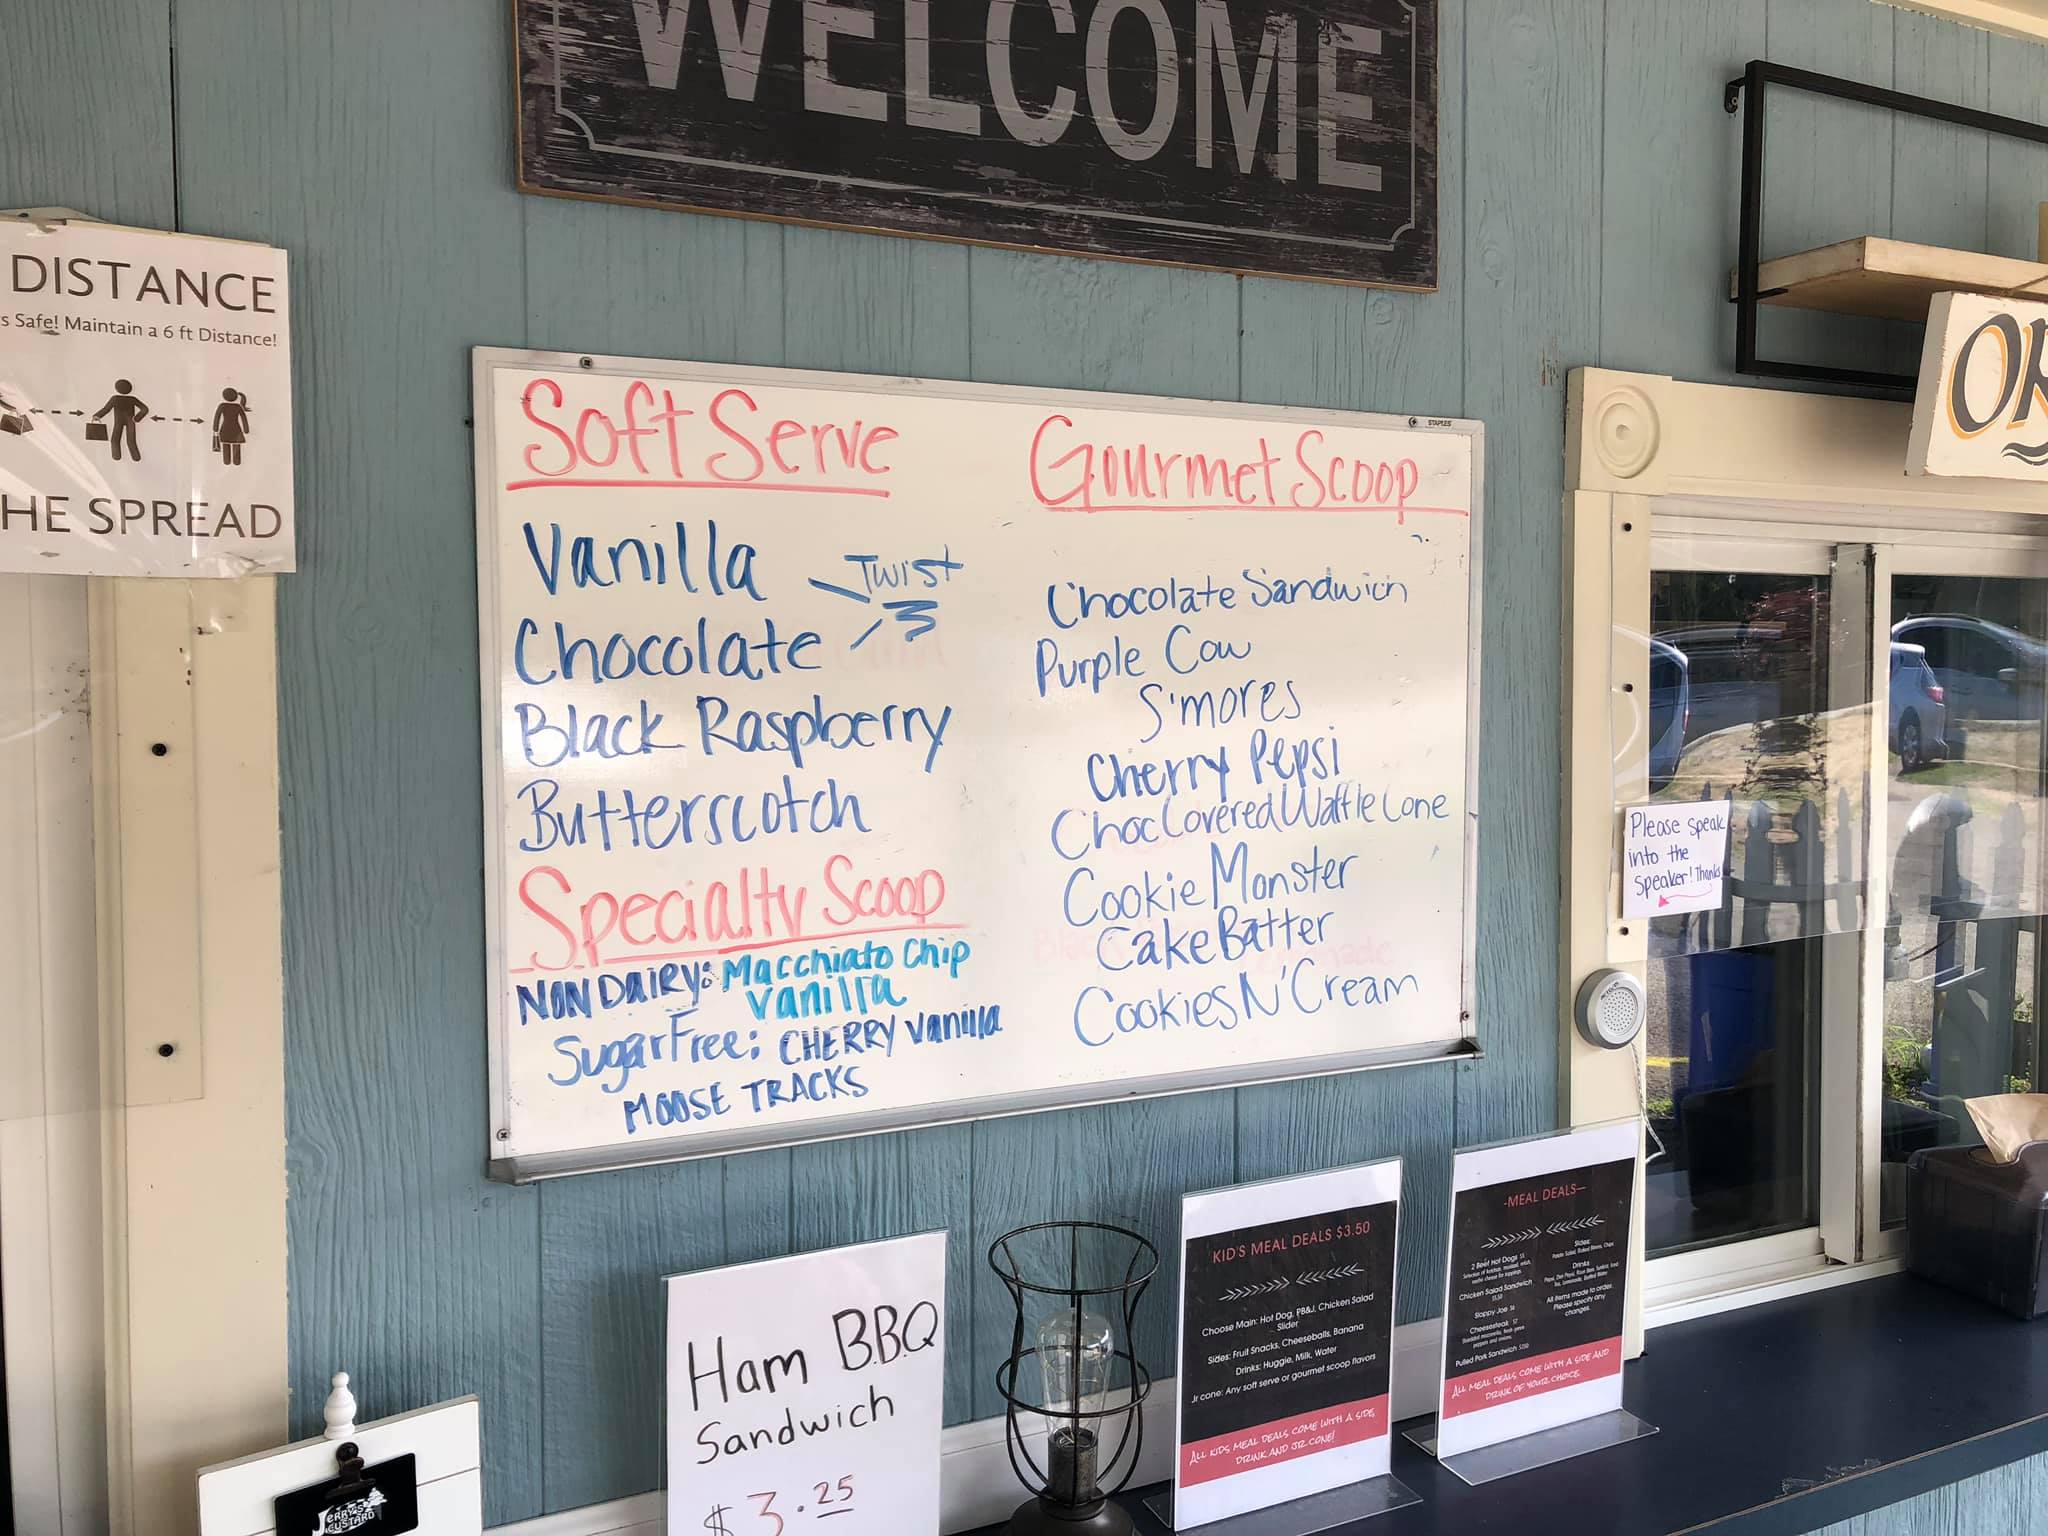 WELCOME
DISTANCE
s Safe! Maintain a 6 ft Distance!
HE SPREAD
STAPLES
Soft Serve
Vanilla
Twist
Chocolate
Black Raspberry
Butterscotch
Specialty Scoop
NON DAIRY: Macchiato Chip
Vanilla
Sugar Free: CHERRY Vanilla
MOOSE TRACKS
Gourmet Scoop
Chocolate Sandwich
Purple Cow
S'mores
Cherry Pepsi
Choc Covered Waffle Cone
Cookie Monster
Cake Batter
Cookies N' Cream
OR
Please speak
into the
Speaker! Thanks
Ham B.B.Q
Sandwich
$3.25
JERRY'S
CUSTARD
KID'S MEAL DEALS $3.50
Choose Main: Hot Dog, PB&J, Chicken Salad
Slider
Sides: Fruit Snacks, Cheeseballs, Banana
Drinks: Huggie, Milk, Water
Jr cone: Any soft serve or gourmet scoop flavors
ALL KIDS MEAL DEALS COME WITH A SIDE,
DRINK AND JR. CONE!
-MEAL DEALS-
2 Beef Hot Dogs $5
Chicken Salad Sandwich
$5.50
Sloppy Joe $6
Cheesesteak $7
Pulled Pork Sandwich
Sides:
Potato Salad, Baked Beans, Chips
Drinks
All items made to order.
Please specify any
changes.
ALL MEAL DEALS COME WITH A SIDE AND
DRINK OF YOUR CHOICE